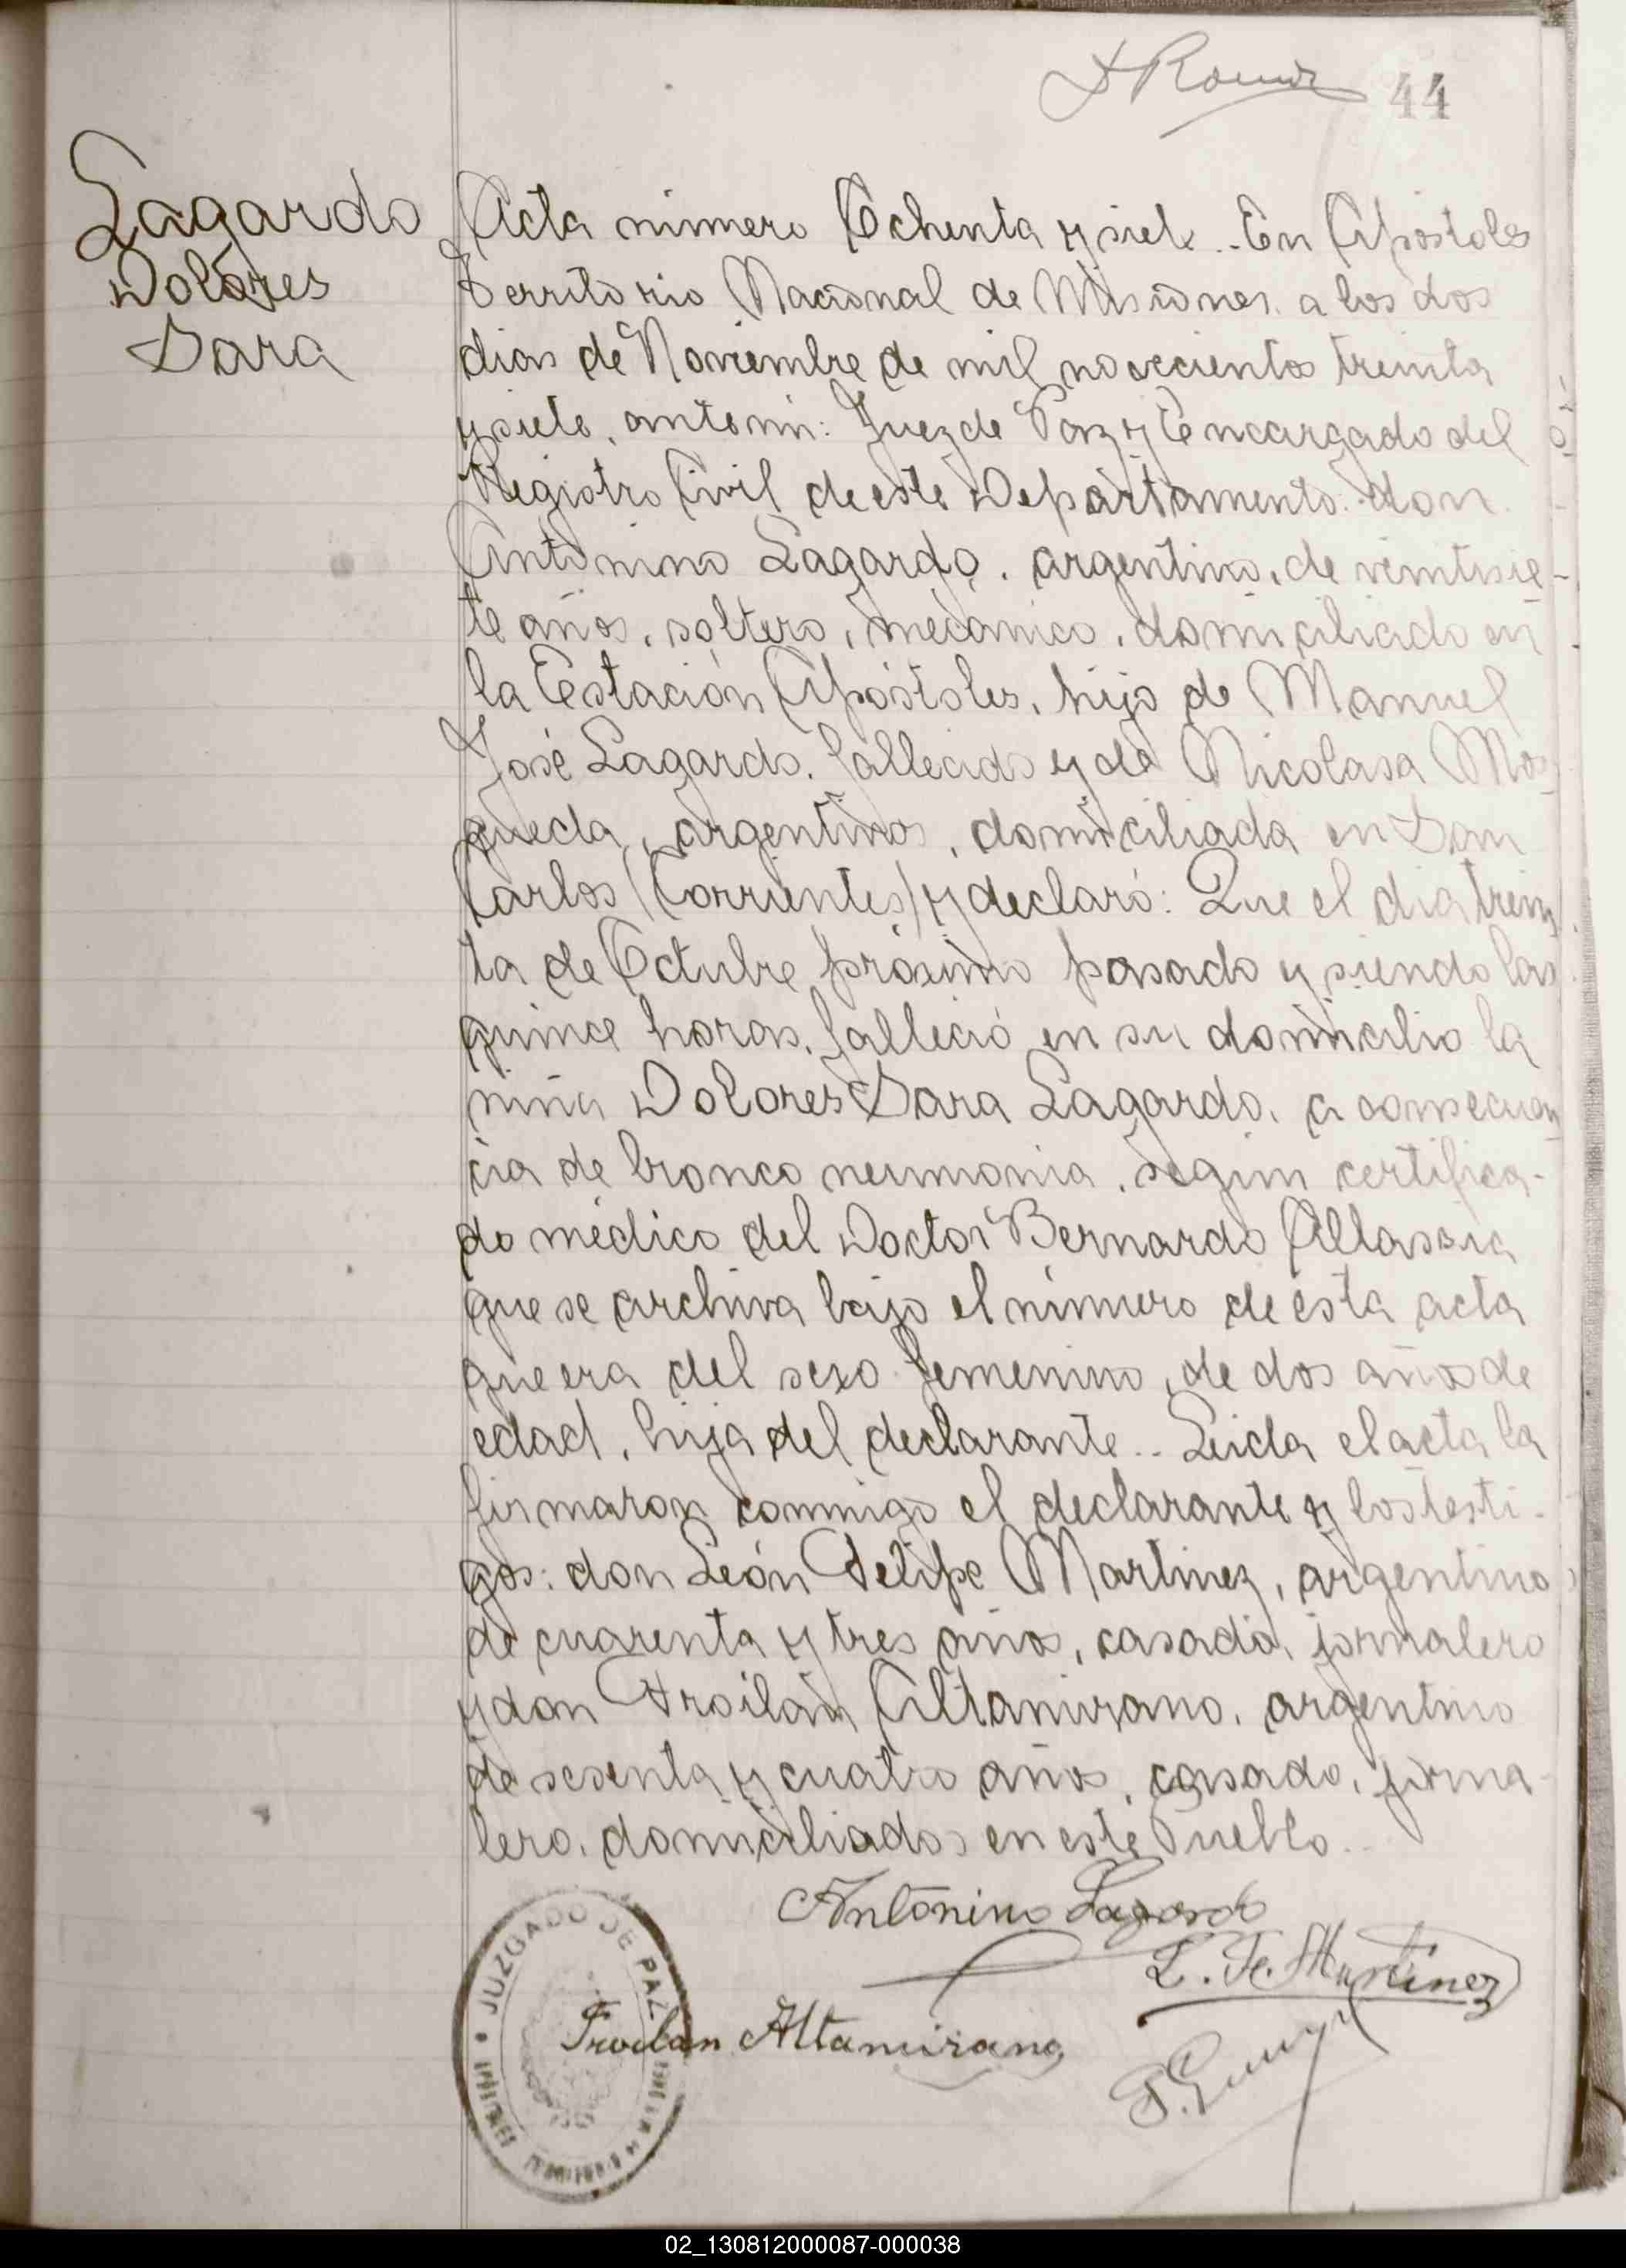 44
Lagardo
Dolores
Sara
Acta número Ochenta y siete.. En Apostoles
Territorio Nacional de Misiones. a los dos
dias de Noviembre de mil novecientos treinta
y siete, ante mi: Juez de Paz y Encargado del
Registro Civil de este Departamento. don
Antonino Lagardo. argentino, de veintisie-
te años, soltero, mecánico, domiciliado en
la Estación Apóstoles, hijo de Manuel
José Lagardo. fallecido y de Nicolasa Mos
queda, argentinos, domiciliada en San
Carlos (Corrientes) y declaró: Que el dia trein
ta de Octubre próximo pasado y siendo las
quince horas, falleció en su domicilio la
niña Dolores Sara Lagardo, a consecuen
cia de bronco neumonia, según certifica-
do médico del Doctor Bernardo Allassia
que se archiva bajo el número de ésta acta
que era del sexo femenino, de dos años de
edad, hija del declarante.. Leida el acta la
firmaron conmigo el declarante y los testi-
gos: don León Felipe Martinez, argentino
de cuarenta y tres años, casado, jornalero
y don Froilán Altamirano, argentino
de sesenta y cuatro años, casado, jorna-
lero, domiciliados en este Pueblo..
Antonino Lagardo
L. Fe. Martinez
Froilan Altamirano
JUZGADO DE PAZ
02_130812000087-000038